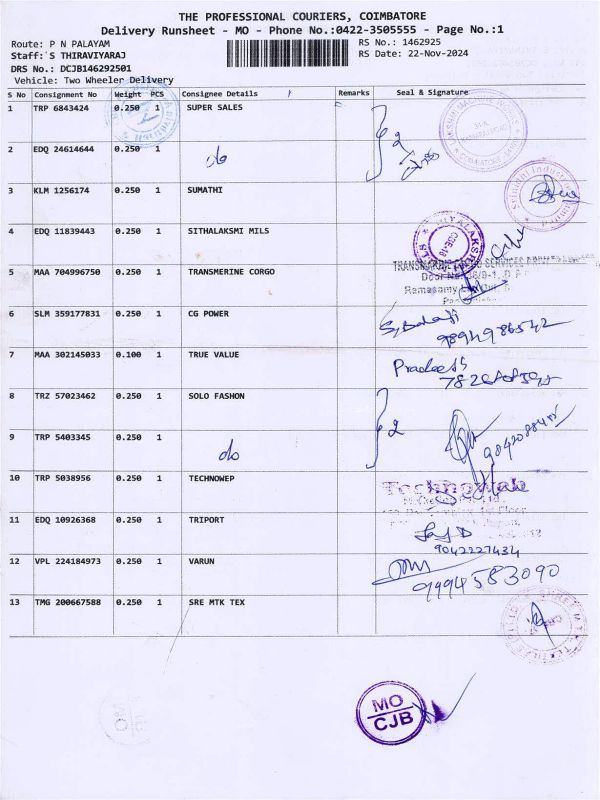 THE PROFESSIONAL COURIERS, COIMBATORE
Delivery Runsheet - MO - Phone No.:0422-3505555 - Page No.:1
Route: P N PALAYAM RS No.: 1462925
Staff: S THIRAVIYARAJ RS Date: 22-Nov-2024
DRS No.: DCJB146292501
Vehicle: Two Wheeler Delivery
S No Consignment No Weight PCS Consignee Details Remarks Seal & Signature
1 TRP 6843424 0.250 1 SUPER SALES
2 EDQ 24614644 0.250 1 do 2
3 KLM 1256174 0.250 1 SUMATHI
4 EDQ 11839443 0.250 1 SITHALAKSMI MILS
5 MAA 704996750 0.250 1 TRANSMERINE CORGO
6 SLM 359177831 0.250 1 CG POWER S. Balaji
9894986542
7 MAA 302145033 0.100 1 TRUE VALUE Pradeesh
8 TRZ 57023462 0.250 1 SOLO FASHON 2
9 TRP 5403345 0.250 1 do
10 TRP 5038956 0.250 1 TECHNOWEP
11 EDQ 10926368 0.250 1 TRIPORT
9042227434
12 VPL 224184973 0.250 1 VARUN
9994583090
13 TMG 200667588 0.250 1 SRE MTK TEX
MO
CJB